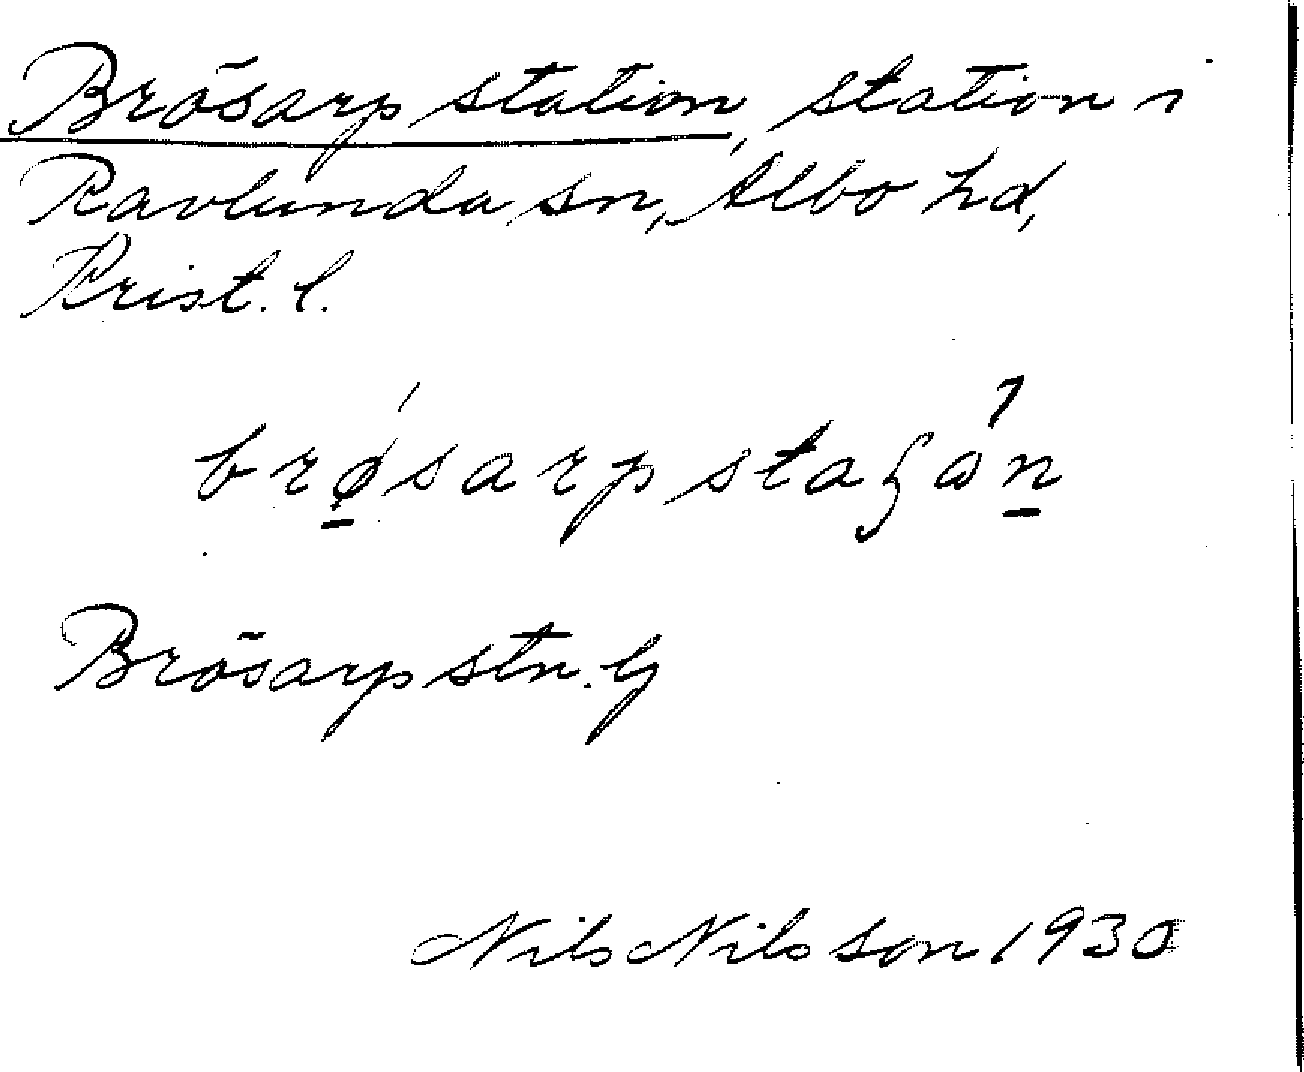 Brösarp station, station i
Ravlunda sn, Albo hd,
Krist. l.
brøsarpstaʃån
Brösarp stn. G
Nils Nilsson 1930